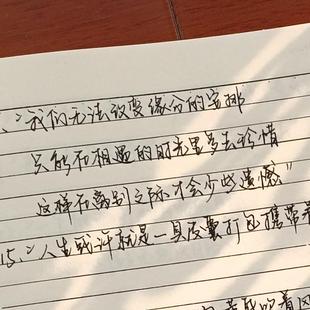 、“我们无法改变缘分的安排
只能在相遇的时光里多去珍惜
这样在离别之际才会少些遗憾”
15、“人生或许就是一具皮囊打包携带着
着风